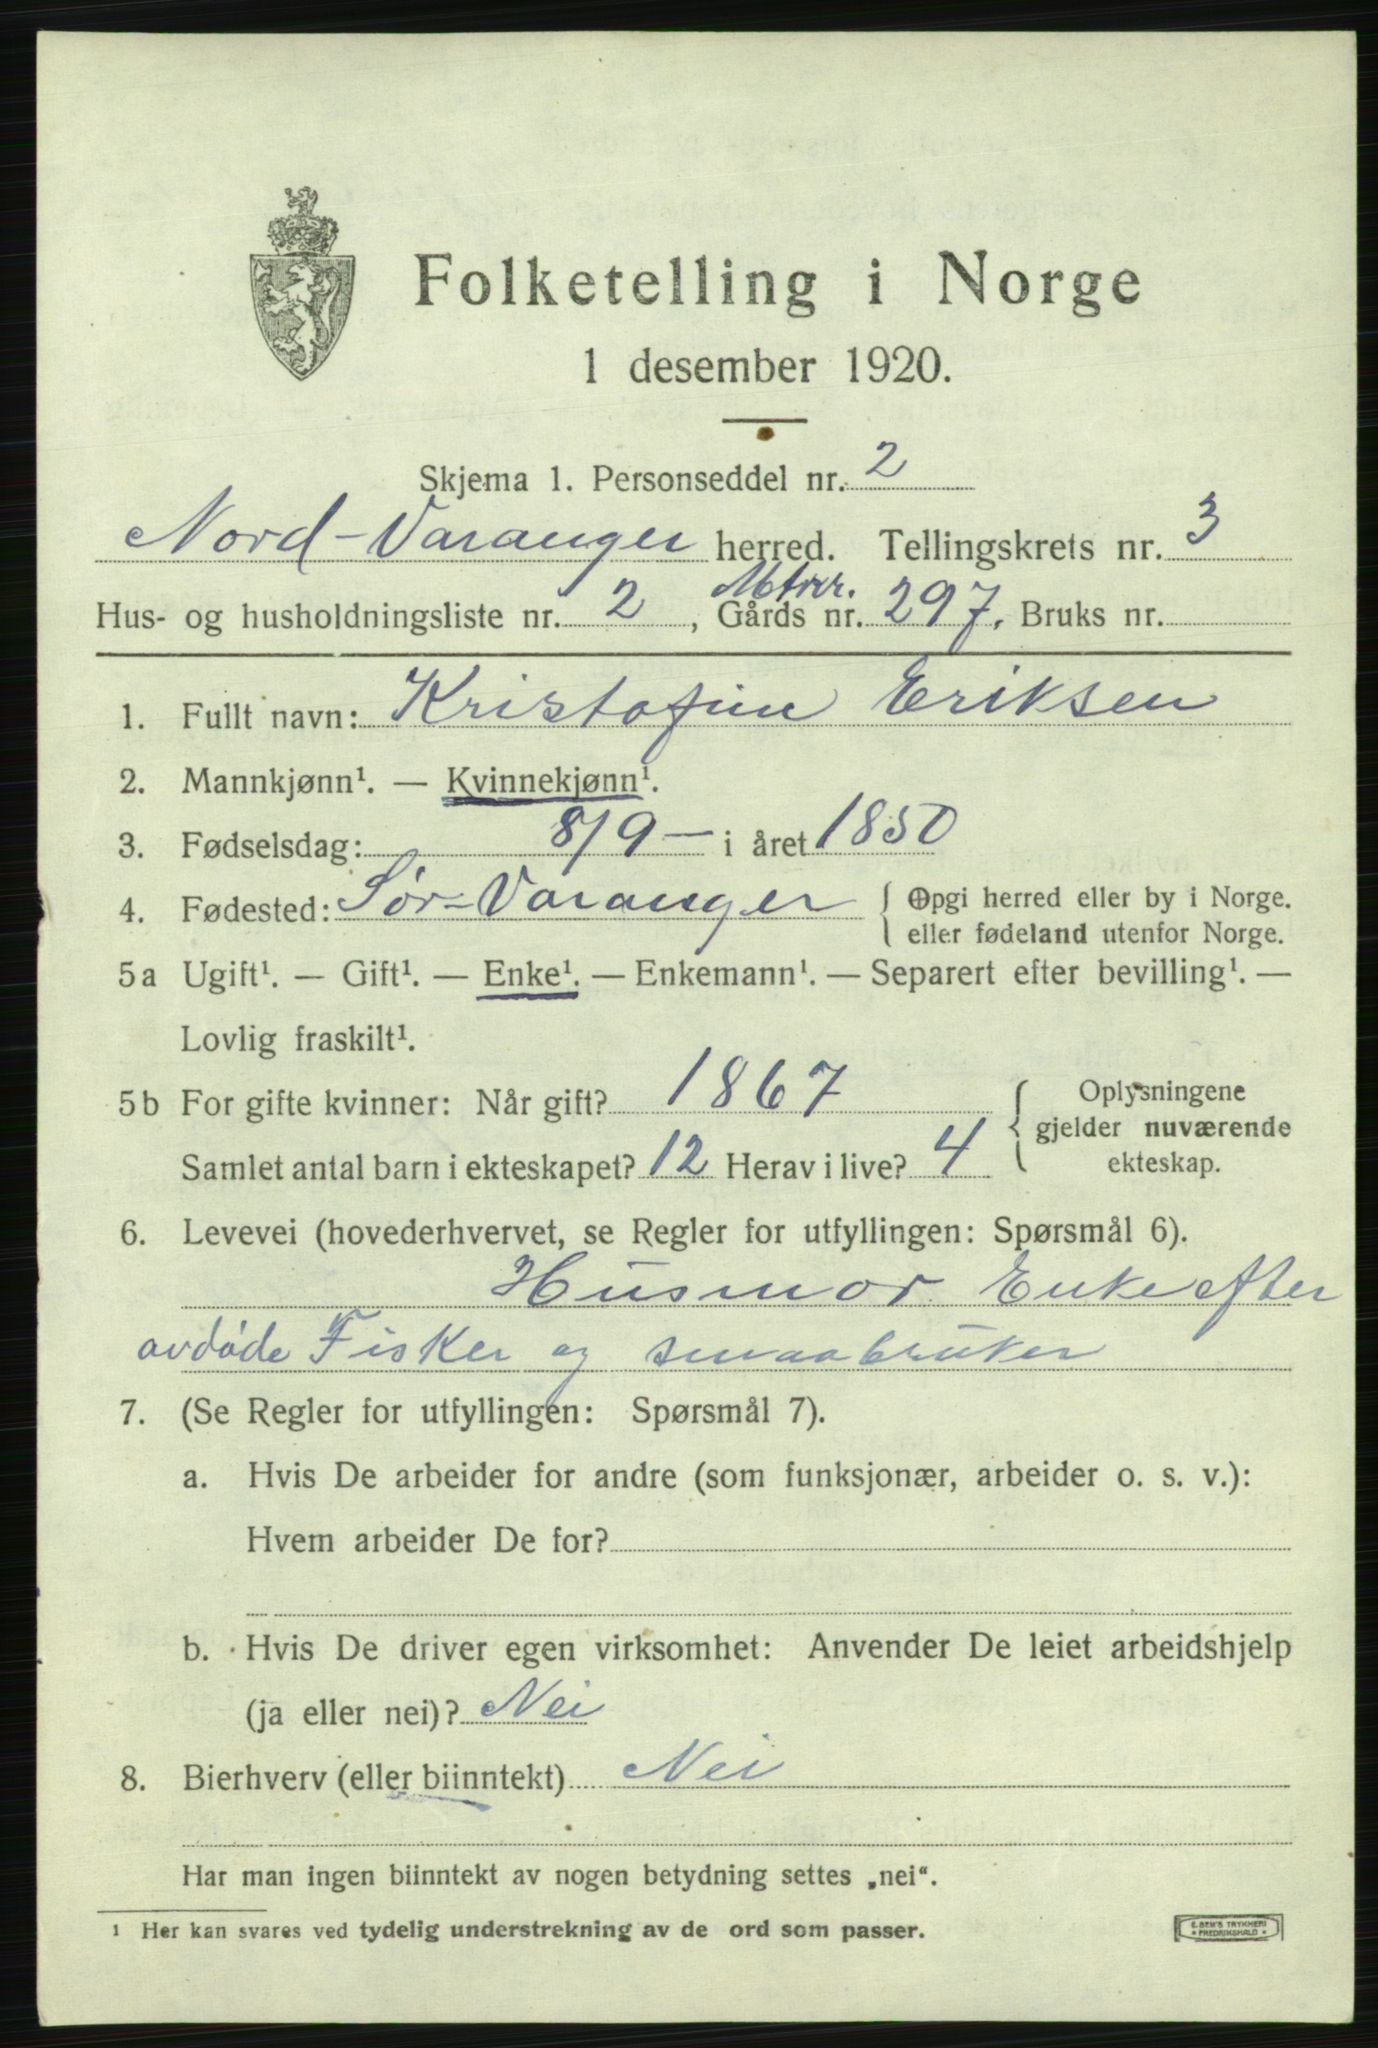 Folketelling i Norge
1 desember 1920.
Skjema 1. Personseddel nr. 2
Nord-Varanger herred. Tellingskrets nr. 3
Mtrnr.
Hus- og husholdningsliste nr. 2, Gårds nr. 297. Bruks nr.
1. Fullt navn: Kristofine Eriksen
2. Mannkjønn¹. — Kvinnekjønn¹.
3. Fødselsdag: 8/9 — i året 1850
4. Fødested: Sør-Varanger { Opgi herred eller by i Norge.
eller fødeland utenfor Norge.
5a Ugift¹. — Gift¹. — Enke¹. — Enkemann¹. — Separert efter bevilling¹. —
Lovlig fraskilt¹.
5b For gifte kvinner: Når gift? 1867
Samlet antal barn i ekteskapet? 12 Herav i live? 4
{ Oplysningene
gjelder nuværende
ekteskap.
6. Levevei (hovederhvervet, se Regler for utfyllingen: Spørsmål 6).
Husmor Enke efter
avdøde Fisker og smaabruker
7. (Se Regler for utfyllingen: Spørsmål 7).
a. Hvis De arbeider for andre (som funksjonær, arbeider o. s. v.):
Hvem arbeider De for?
b. Hvis De driver egen virksomhet: Anvender De leiet arbeidshjelp
(ja eller nei)? Nei
8. Bierhverv (eller biinntekt) Nei
Har man ingen biinntekt av nogen betydning settes „nei“.
¹ Her kan svares ved tydelig understrekning av de ord som passer.
E. SEM'S TRYKKERI
• FREDRIKSHALD •